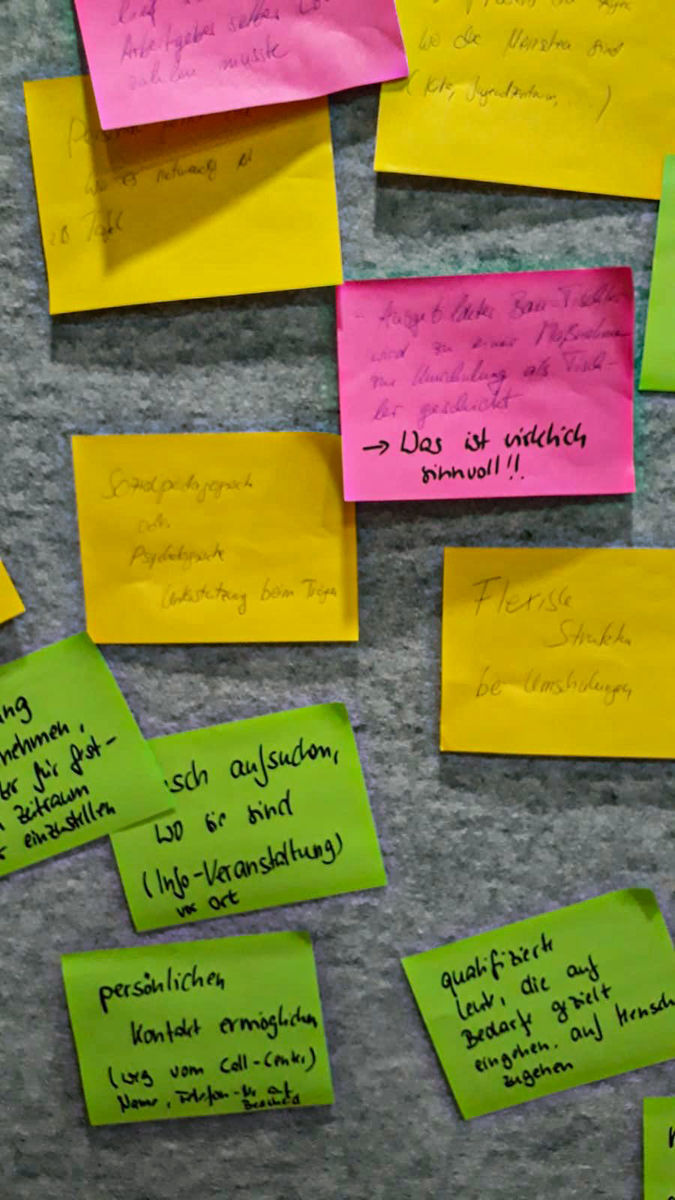 Arbeitgeber selber
zahlen müsste
wo die Menschen sind
(Kita, Jugendzentrum, ...)
wo es notwendig ist
zB Tafel
- Ausgebildeter Bau-Tischler
wird zu einer Maßnahme
zur Umschulung als Tisch-
ler geschickt
→ Was ist wirklich
sinnvoll!!
Sozialpädagogische
oder
Psychologische
Unterstützung beim Träger
Flexible
Struktur
bei Umschulungen
nehmen,
für fest-
Zeitraum
einzustellen
aufsuchen,
wo sie sind
(Info-Veranstaltung)
vor Ort
persönlichen
Kontakt ermöglichen
(weg vom Call-Center)
Name, Telefon-Nr auf
Bescheid
qualifizierte
Leute, die auf
Bedarfe gezielt
eingehen. auf Mensch
zugehen